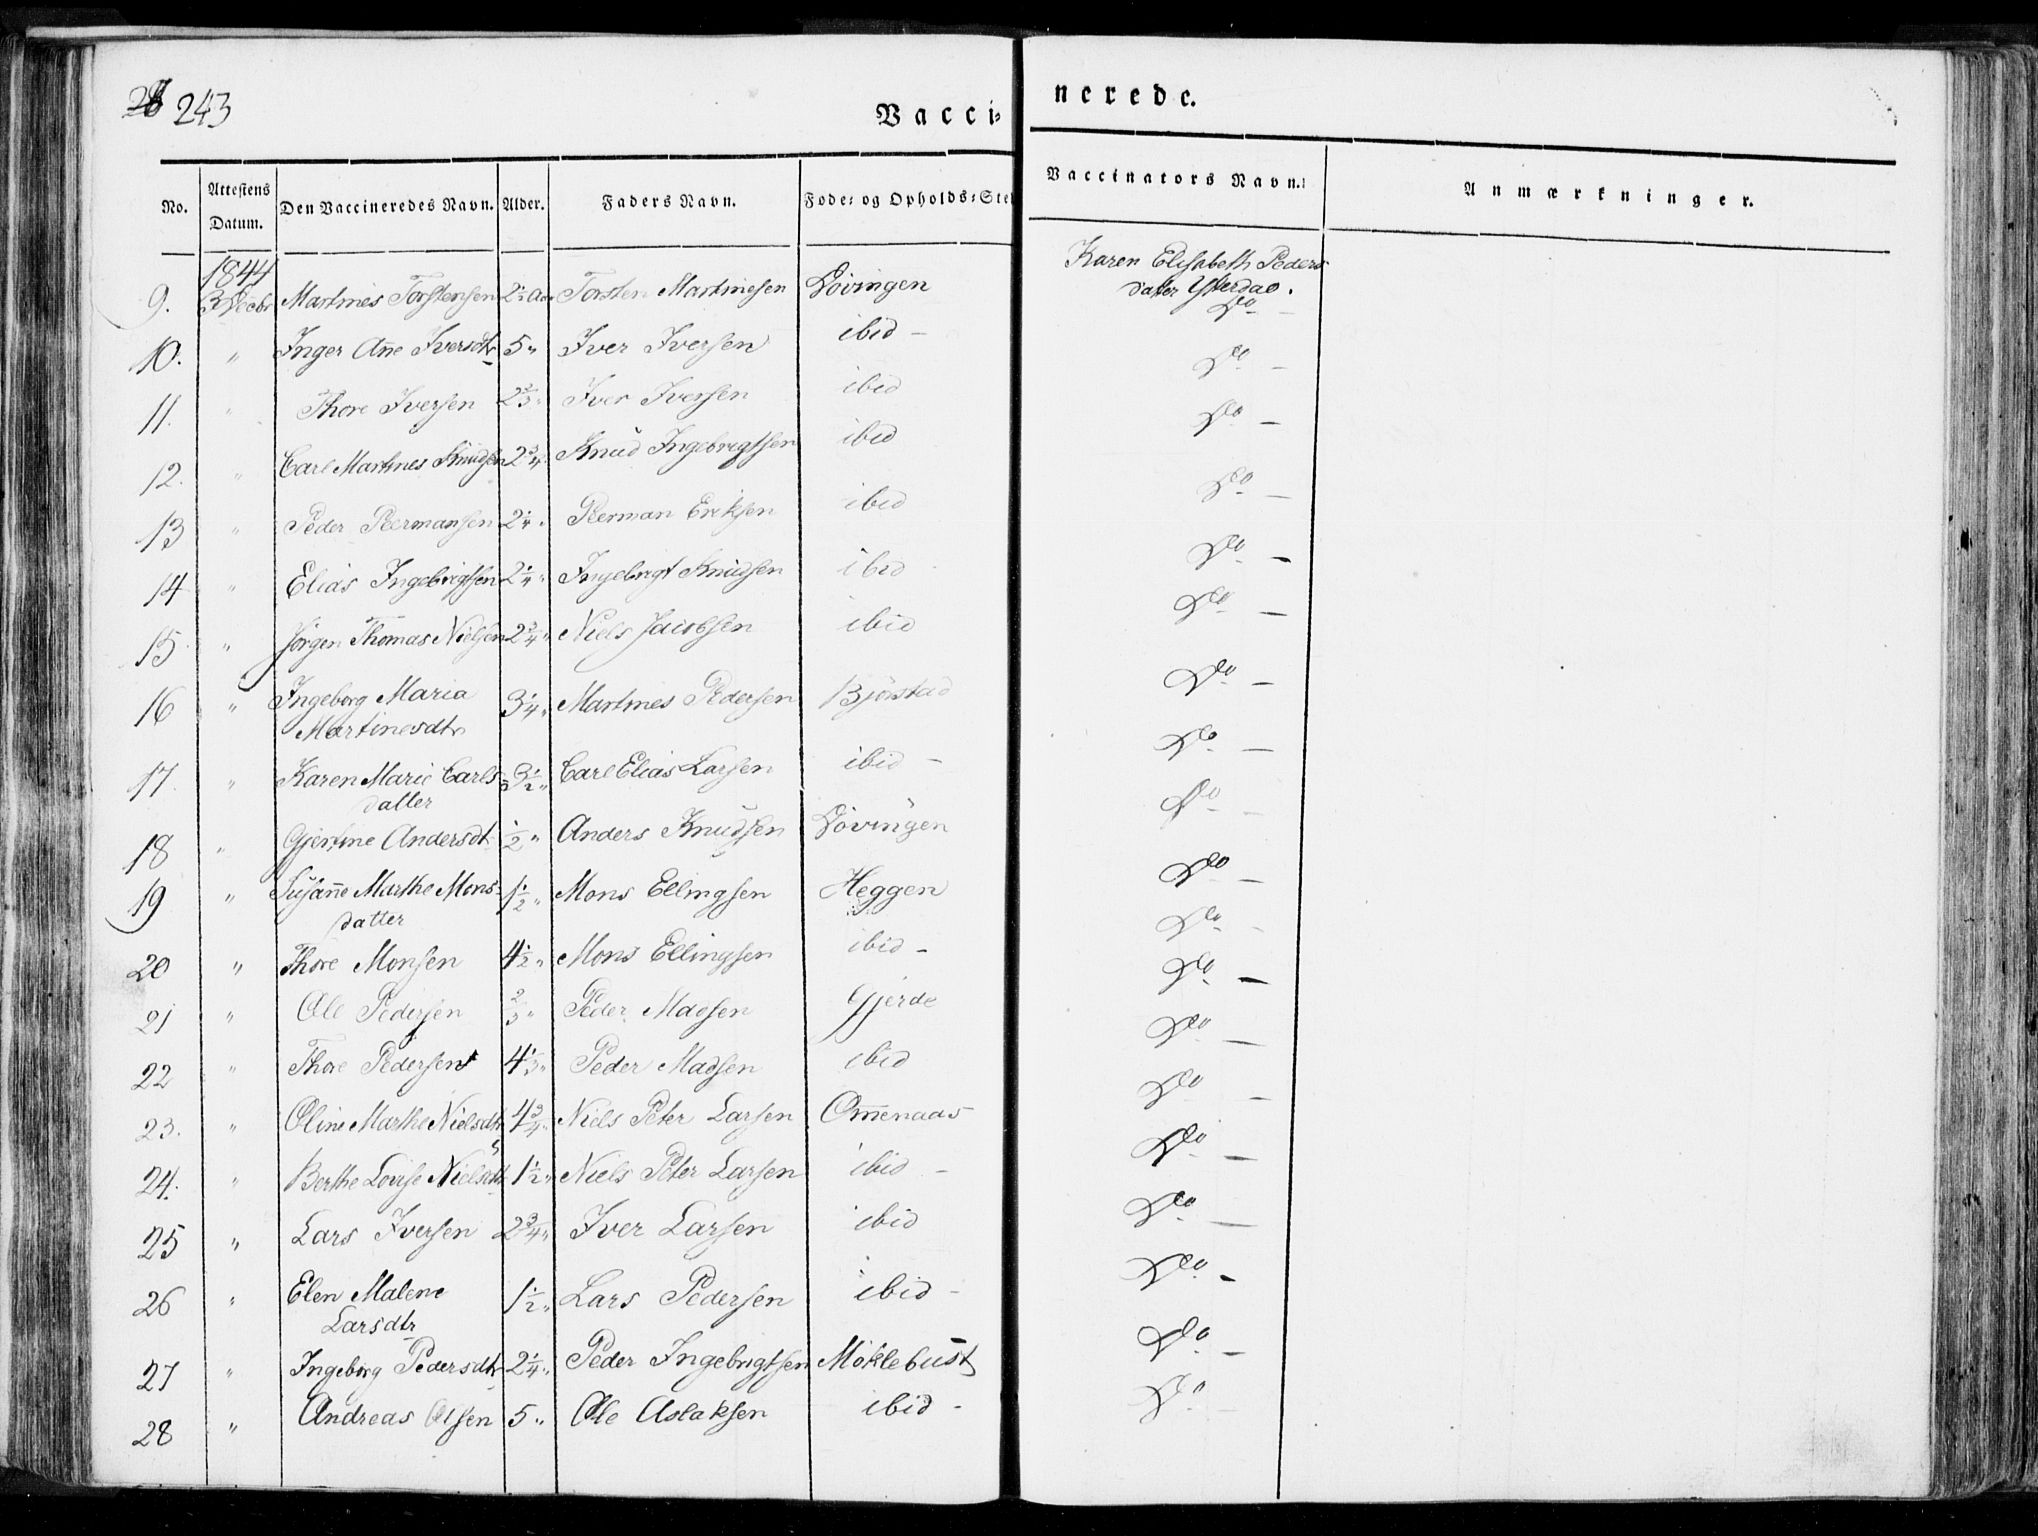 243
Vacci= nerede.
No. Attestens Datum. Den Vaccineredes Navn. Alder. Faders Navn. Føde= og Opholds=Ste Vaccinators Navn. Anmærkninger.
1844
9. 3 Decbr Martines Torstensen 2½ Aar Torsten Martinesen Lövingen Karen Elisabeth Peders
datter Ytterdao.
10. " Inger Añe Iversdtr 5 " Iver Iversen ibid - Do -
11. " Thore Iversen 2⅔ " Iver Iversen ibid Do -
12. " Carl Martines Knudsen 2¾ " Knud Ingebrigtsen ibid Do -
13 " Peder Peermansen 2¼ " Peerman Eriksen ibid Do -
14 " Elias Ingebrigtsen 2¼ " Ingebrigt Knudsen ibid Do -
15 " Jörgen Thomas Nielsen 2¾ " Niels Jacobsen ibid Do -
16 " Ingeborg Maria 3¼ " Martines Pedersen Bjørstad Do -
Martinesdtr
17. " Karen Marie Carls= 3½ " Carl Elias Larsen ibid - Do -
datter
18 " Gjertine Andersdt ½ " Anders Knudsen Lövingen Do -
19 " Susañe Marthe Mons= 1½ " Mons Ellingsen Heggen Do -
datter
20 " Thore Monsen 4½ " Mons Ellingsen ibid - Do -
21 " Ole Pedersen ⅔ " Peder Madsen Gjerde Do -
22 " Thore Pedersen 4⅓ " Peder Madsen ibid Do -
23. " Oline Marthe Nielsdtr 4¾ " Niels Peter Larsen Omenaas Do -
24. " Berthe Lovise Nielsdtr 1½ " Niels Peter Larsen ibid - Do -
25 " Lars Iversen 2¾ " Iver Larsen ibid Do -
26 " Elen Malene 1½ " Lars Pedersen ibid - Do -
Larsdtr
27 " Ingeborg Pedersdtr 2¼ " Peder Ingebrigtsen Möklebust Do -
28 " Andreas Olsen 5 " Ole Aslaksen ibid - Do -